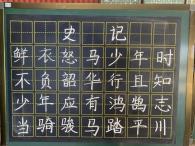 史记
鲜衣怒马少年时
不负韶华行且知
少年应有鸿鹄志
当骑骏马踏平川